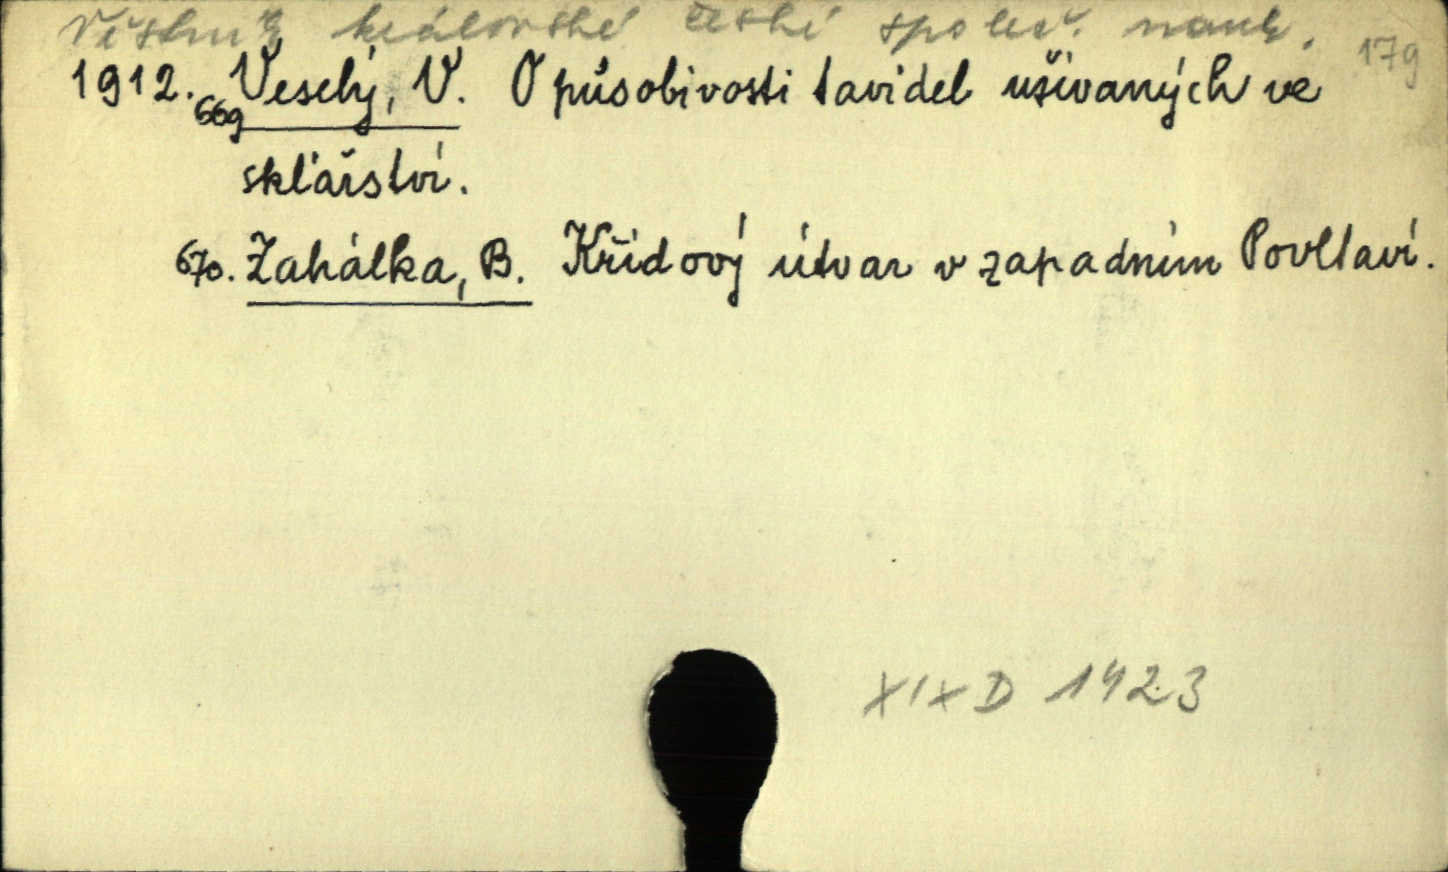 Věstník královské české společ. nauk.
179
1912. Veselý, V. O působivosti tavidel užívaných ve
669
sklářství.
670. Zahálka, B. Křídový útvar v západním Povltaví.
XIX D 1423